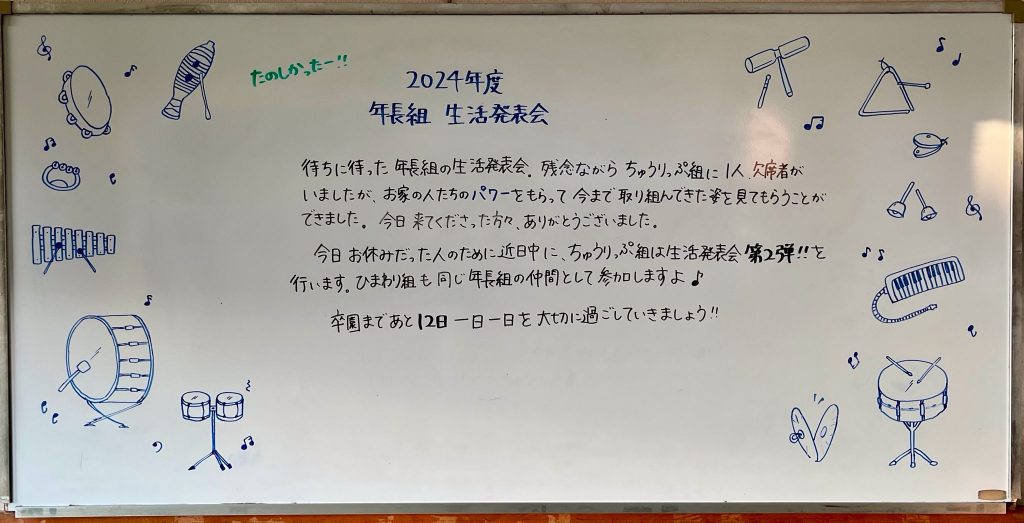 たのしかったー!!
2024年度
年長組 生活発表会
待ちに待った年長組の生活発表会。残念ながら ちゅうりっぷ組に1人、欠席者が
いましたが、お家の人たちのパワーをもらって今まで取り組んできた姿を見てもらうことが
できました。今日来てくださった方々、ありがとうございました。
今日お休みだった人のために近日中に、ちゅうりっぷ組は生活発表会 第2弾!!を
行います。ひまわり組も同じ年長組の仲間として参加しますよ♪
卒園まであと12日 一日一日を大切に過ごしていきましょう!!